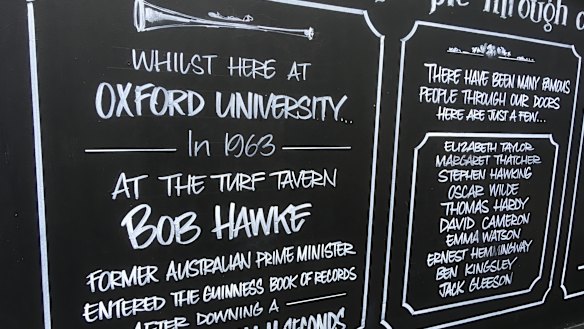 WHILST HERE AT
OXFORD UNIVERSITY...
In 1963
AT THE TURF TAVERN
BOB HAWKE
FORMER AUSTRALIAN PRIME MINISTER
ENTERED THE GUINNESS BOOK OF RECORDS
AFTER DOWNING A
11 SECONDS
through
THERE HAVE BEEN MANY FAMOUS
PEOPLE THROUGH OUR DOORS
HERE ARE JUST A FEW...
ELIZABETH TAYLOR
MARGARET THATCHER
STEPHEN HAWKING
OSCAR WILDE
THOMAS HARDY
DAVID CAMERON
EMMA WATSON
ERNEST HEMINGWAY
BEN KINGSLEY
JACK GLEESON